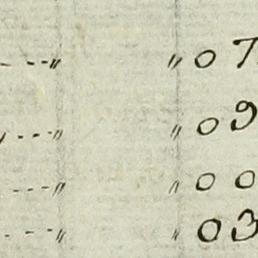 ---〃 〃 07
---〃 〃 09
---〃 〃 00
---〃 〃 03